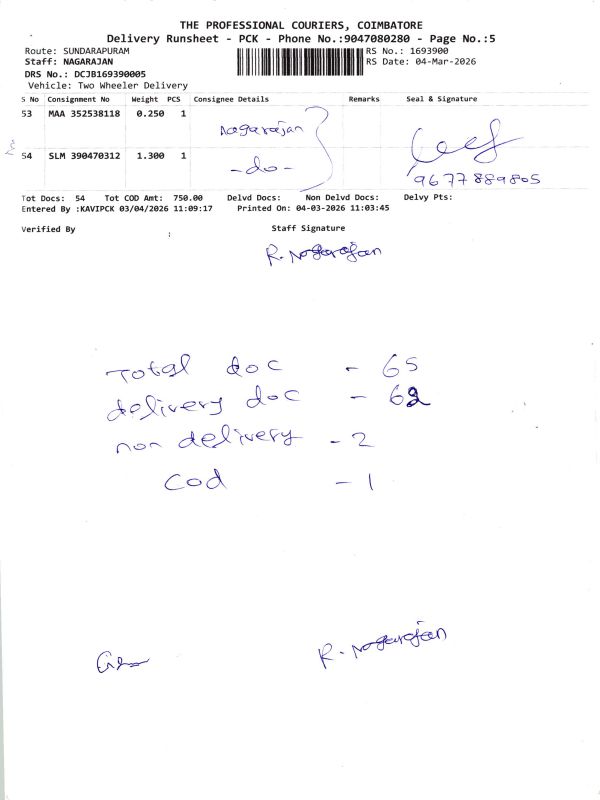 THE PROFESSIONAL COURIERS, COIMBATORE
Delivery Runsheet - PCK - Phone No.:9047080280 - Page No.:5
Route: SUNDARAPURAM
RS No.: 1693900
Staff: NAGARAJAN
RS Date: 04-Mar-2026
DRS No.: DCJB169390005
Vehicle: Two Wheeler Delivery
S No Consignment No Weight PCS Consignee Details Remarks Seal & Signature
53 MAA 352538118 0.250 1 Nagarajan
54 SLM 390470312 1.300 1 -do-
9677889805
Tot Docs: 54 Tot COD Amt: 750.00 Delvd Docs: Non Delvd Docs: Delvy Pts:
Entered By :KAVIPCK 03/04/2026 11:09:17 Printed On: 04-03-2026 11:03:45
Verified By : Staff Signature
R. Nagarajan
Total doc - 65
delivery doc - 62
non delivery - 2
Cod - 1
R. Nagarajan